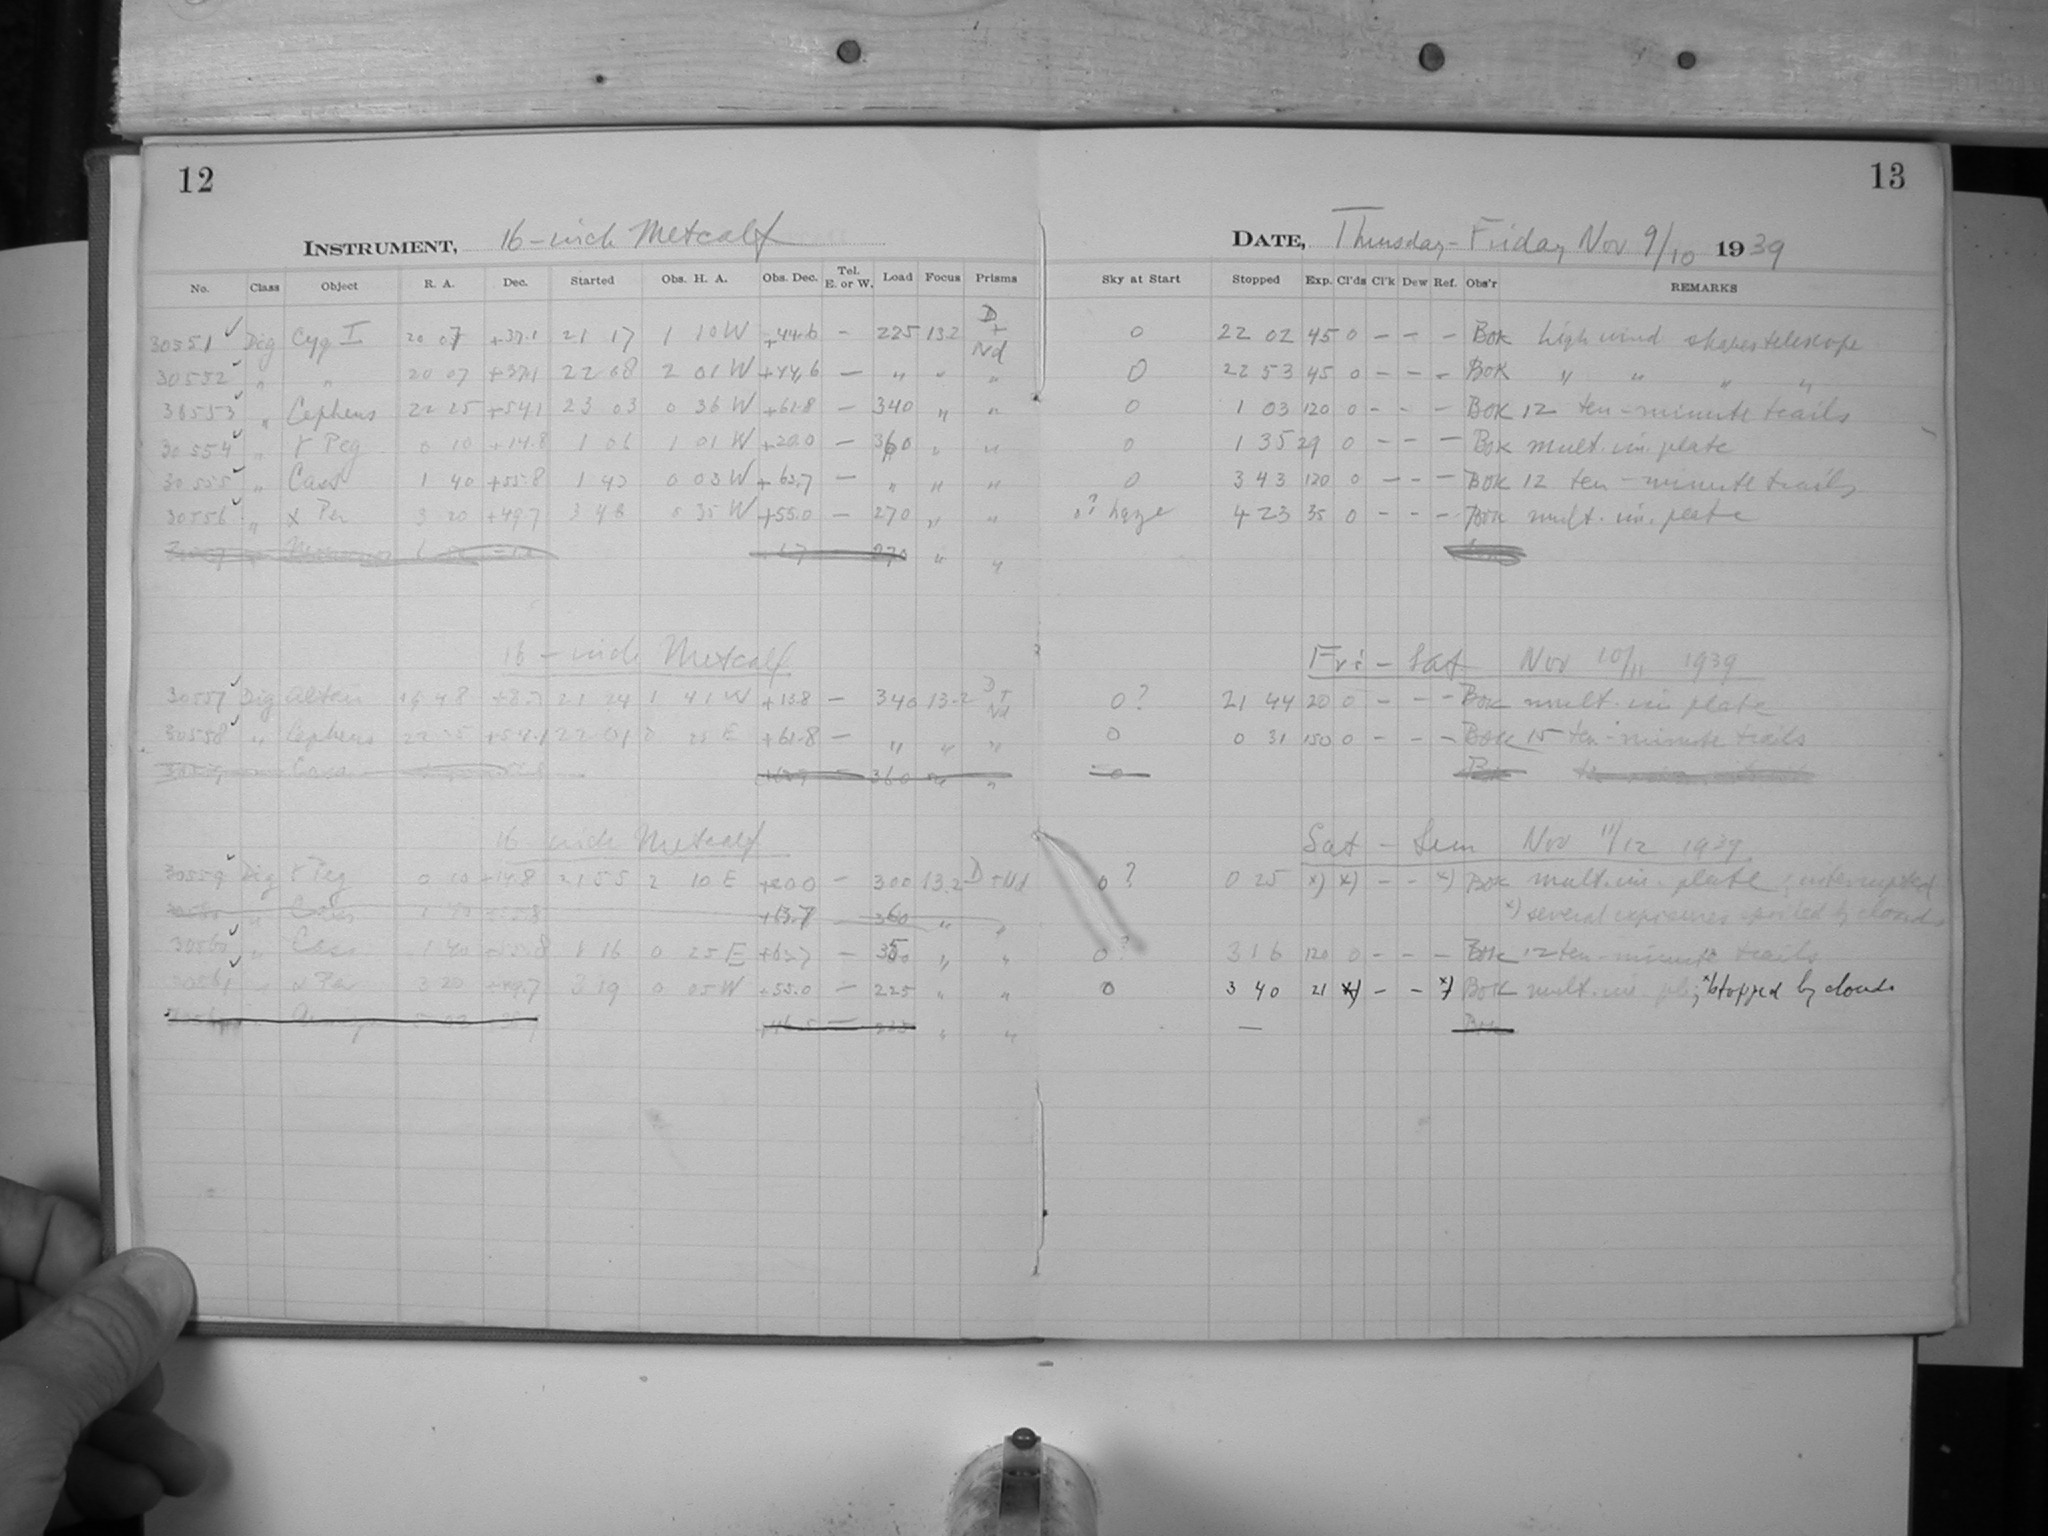 12
13
INSTRUMENT, 16-inch Metcalf
DATE, Thursday-Friday Nov 9/10 1939
No. Class Object R. A. Dec. Started Obs. H. A. Obs. Dec. Tel. E. or W. Load Focus Prisms Sky at Start Stopped Exp. Cl'ds Cl'k Dew Ref. Obs'r REMARKS
30551 ✓ Dig Cyg I 20 07 +37.1 21 17 1 10 W +44.6 — 225 13.2 D + Nd 0 22 02 45 0 - - - Bok high wind shakes telescope
30552 ✓ " " 20 07 +37.1 22 08 2 01 W +44.6 — " " " 0 22 53 45 0 - - - Bok " " " "
30553 ✓ " Cepheus 22 25 +54.1 23 03 0 36 W +61.8 — 340 " " 0 1 03 120 0 - - - Bok 12 ten-minute trails
30554 ✓ " γ Peg 0 10 +14.8 1 06 1 01 W +20.0 — 360 " " 0 1 35 29 0 - - - Bok mult. im. plate
30555 ✓ " Cass 1 40 +55.8 1 43 0 03 W +63.7 — " " " 0 3 43 120 0 - - - Bok 12 ten-minute trails
30556 ✓ " α Per 3 20 +49.7 3 48 0 35 W +55.0 — 270 " " 0? haze 4 23 35 0 - - - Bok mult. im. plate
270 " "
16-inch Metcalf Fri - Sat Nov 10/11 1939
30557 ✓ Dig Altair 19 48 +8.7 21 24 1 41 W +13.8 — 340 13.2 D + Nd 0? 21 44 20 0 - - - Bok mult. im. plate
30558 ✓ " Cepheus 22 25 +54.1 22 01 0 25 E +61.8 — " " " 0 0 31 150 0 - - - Bok 15 ten-minute trails
Cass 360 " " 0 Bok
16-inch Metcalf Sat - Sun Nov 11/12 1939
30559 ✓ Dig γ Peg 0 10 +14.8 21 55 2 10 E +20.0 — 300 13.2 D+Nd 0? 0 25 x) x) - - x) Bok mult. im. plate; interrupted
30560 " Cass 1 40 +55.8 +63.7 — 360 " " x) several exposures spoiled by clouds
30560 ✓ " Cass 1 40 +55.8 1 16 0 25 E +63.7 — 350 " " 0? 3 16 120 0 - - - Bok 12 ten-minute trails
30561 ✓ " α Per 3 20 +49.7 3 19 0 05 W +55.0 — 225 " " 0 3 40 21 x) - - x) Bok mult. im. pl; x) stopped by clouds
+46.5 — 225 " " — Bok